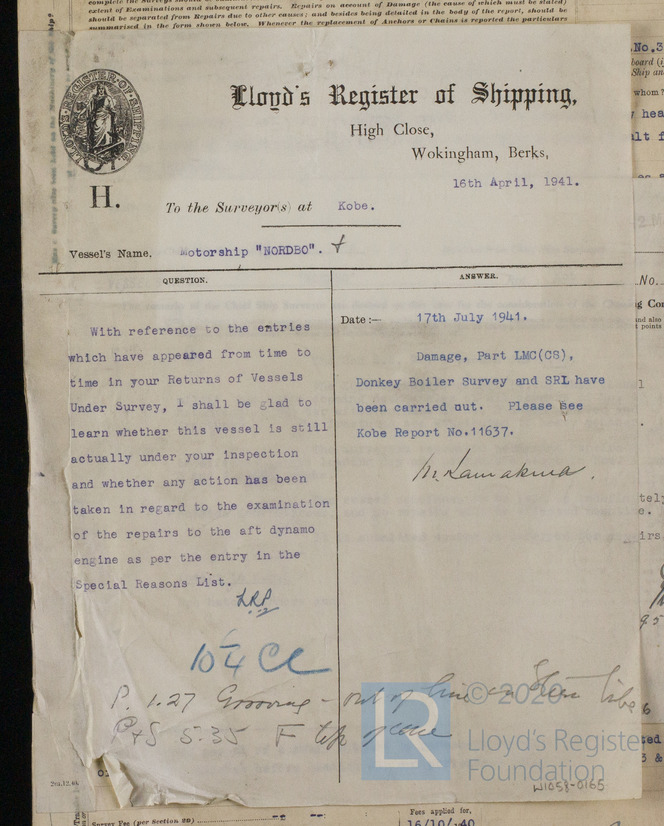 complete the Surveys should be
extent of Examinations and subsequent repairs. Repairs on account of Damage (the cause of which must be stated)
should be separated from Repairs due to other causes; and besides being detailed in the body of the report, should be
summarised in the form shown below. Whenever the replacement of Anchors or Chains is reported the particulars
LLOYD'S REGISTER OF SHIPPING
Lloyd's Register of Shipping,
High Close,
Wokingham, Berks,
16th April, 1941.
H.
To the Surveyor(s) at Kobe.
Vessel's Name. Motorship "NORDBO".
QUESTION.
With reference to the entries
which have appeared from time to
time in your Returns of Vessels
Under Survey, I shall be glad to
learn whether this vessel is still
actually under your inspection
and whether any action has been
taken in regard to the examination
of the repairs to the aft dynamo
engine as per the entry in the
Special Reasons List.
ANSWER.
Date :— 17th July 1941.
Damage, Part LMC(CS),
Donkey Boiler Survey and SRL have
been carried out. Please see
Kobe Report No.11637.
P. 1.27 Grooving - out of line
P+S 5.35 F top of
LR © 2020
Lloyd's Register
Foundation
W1058-0165
Survey Fee (per Section 29)
Fees applied for,
16/10/ 40